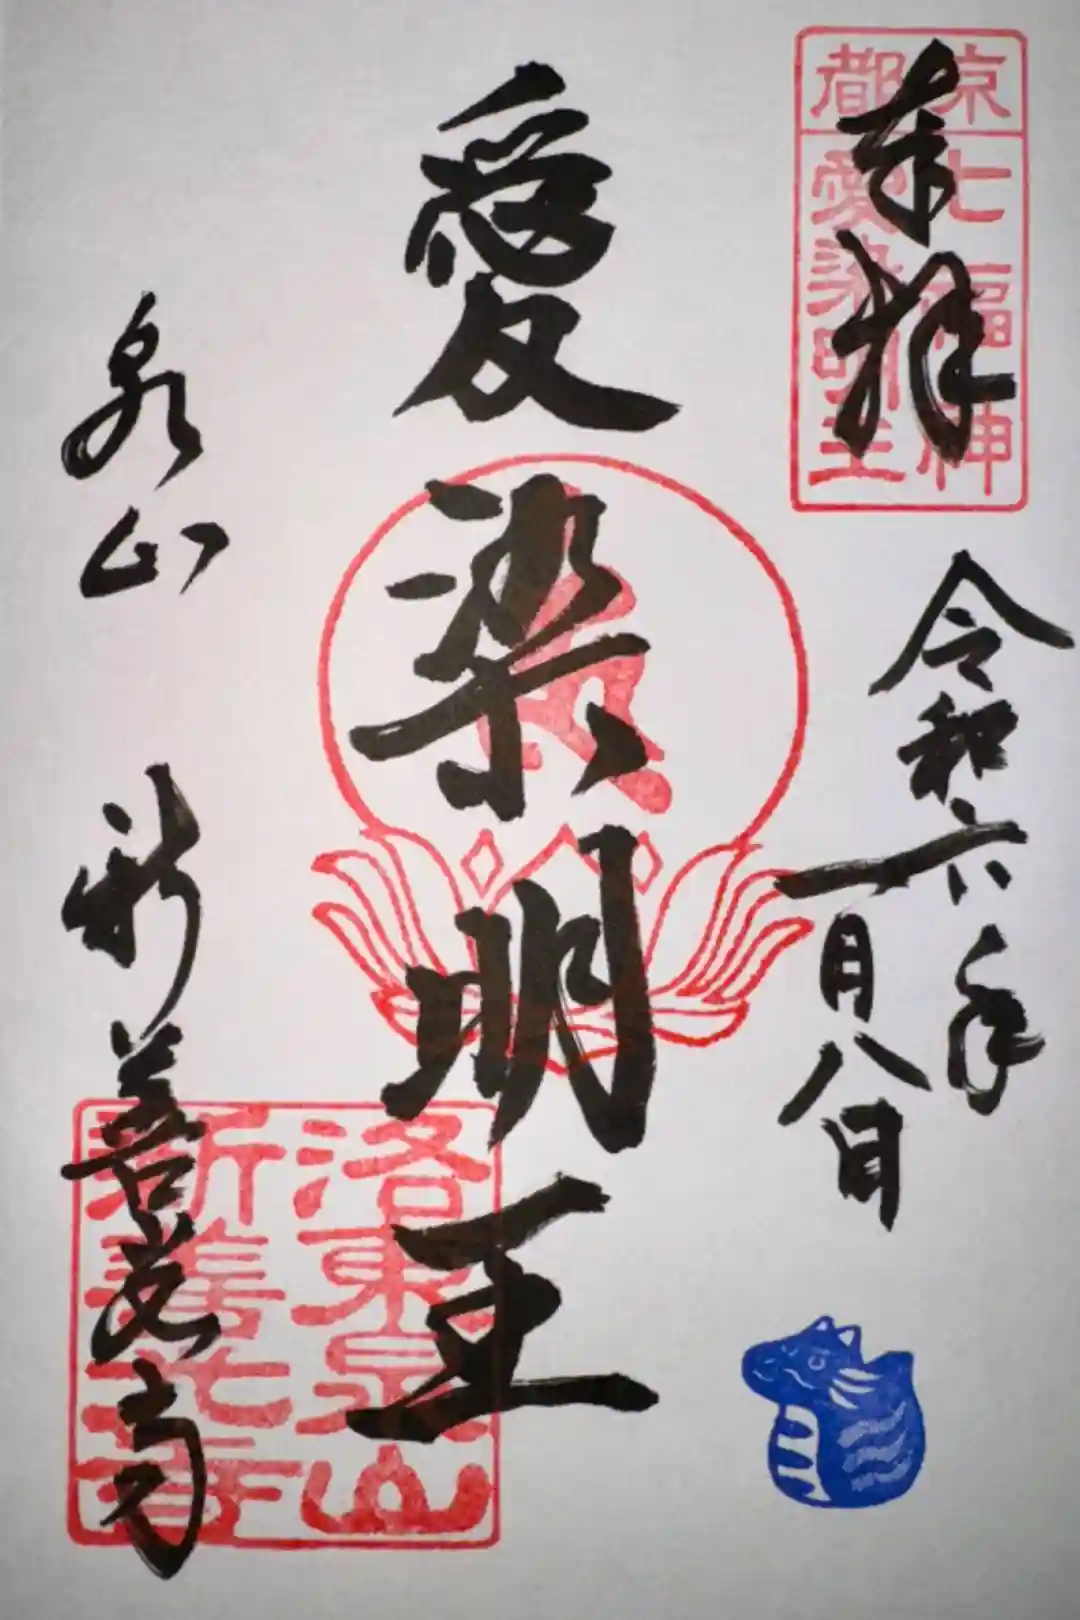 奉拝
京都七福神
愛染明王
令和六年
一月八日
愛染明王
泉山 新善光寺
洛東泉山
新善光寺